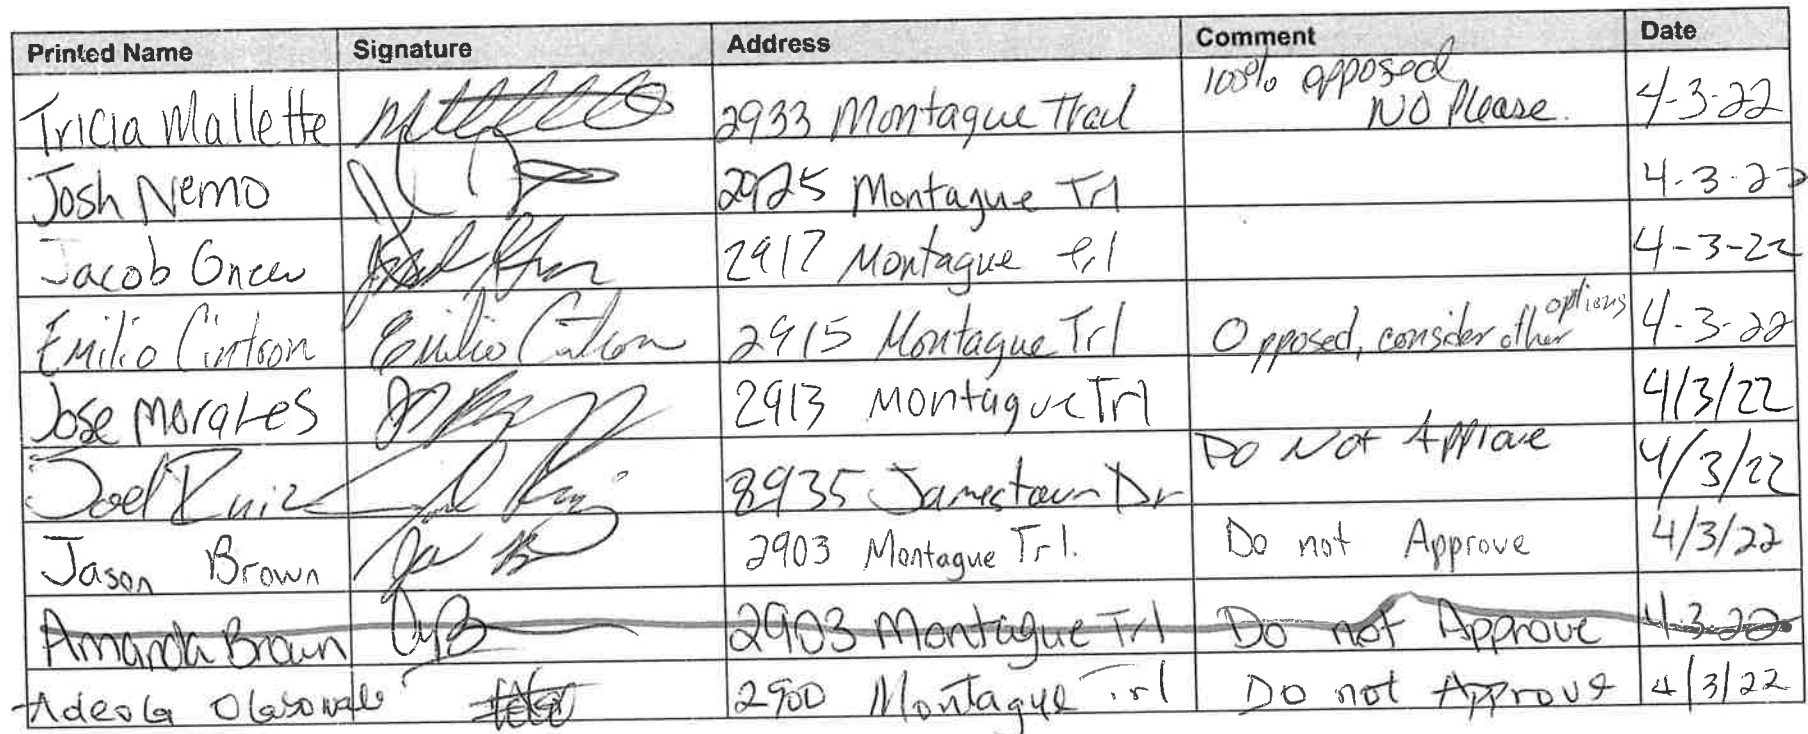 Printed Name Signature Address Comment Date
Tricia Mallette 2933 Montague Trail 100% opposed NO Please. 4-3-22
Josh Nemo 2925 Montague Trl 4-3-22
Jacob 2917 Montague Trl 4-3-22
Emilio Cintron Emilio Cintron 2915 Montague Trl Opposed, consider other options 4-3-22
Jose Morales 2913 Montague Trl 4/3/22
Joel Ruiz 8935 Jamestown Dr Do Not Approve 4/3/22
Jason Brown 2903 Montague Trl. Do not Approve 4/3/22
Amanda Brown 2903 Montague Trl Do not Approve 4-3-22
Adeola 2900 Montague Trl Do not Approve 4/3/22